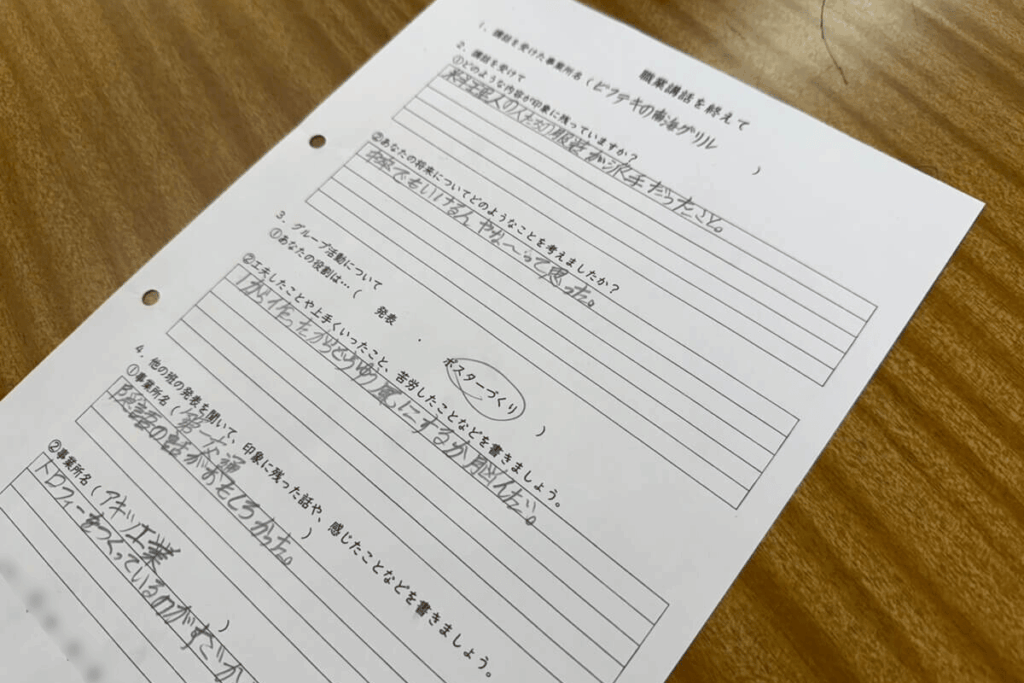 職業講話を終えて
1. 講話を受けた事業所名（ビフテキの南海グリル）
2. 講話を受けて
①どのような内容が印象に残っていますか？
経営人の人たちの服装が派手だったこと。
②あなたの将来についてどのようなことを考えましたか？
でもいけるんやな〜って思った。
3. グループ活動について
①あなたの役割は…（ 発表 ・ ポスターづくり ）
②工夫したことや上手くいったこと、苦労したことなどを書きましょう。
1から作ったからどうゆう風にするか悩んだ。
4. 他の班の発表を聞いて、印象に残った話や、感じたことなどを書きましょう。
①事業所名（第一交通）
障害者の話がおもしろかった。
②事業所名（アキツ工業）
トロフィーをつくっているのがすごいか